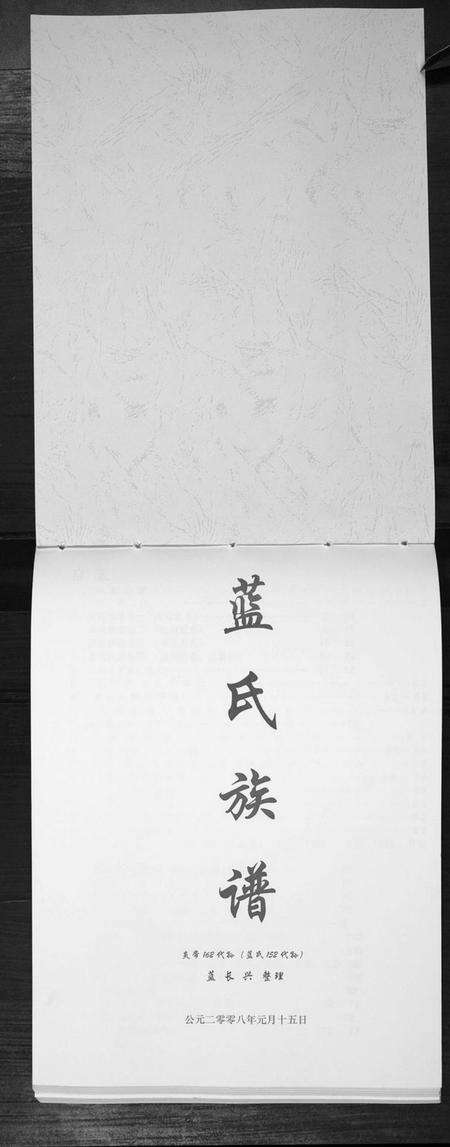 蓝氏族谱
炎帝162代孙（蓝氏152代孙）
蓝长兴 整理
公元二零零八年元月十五日